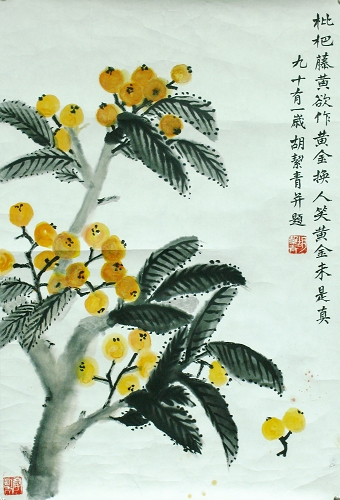 枇杷藤黄欲作黄金换人笑黄金未是真
九十有一岁胡絜青并题